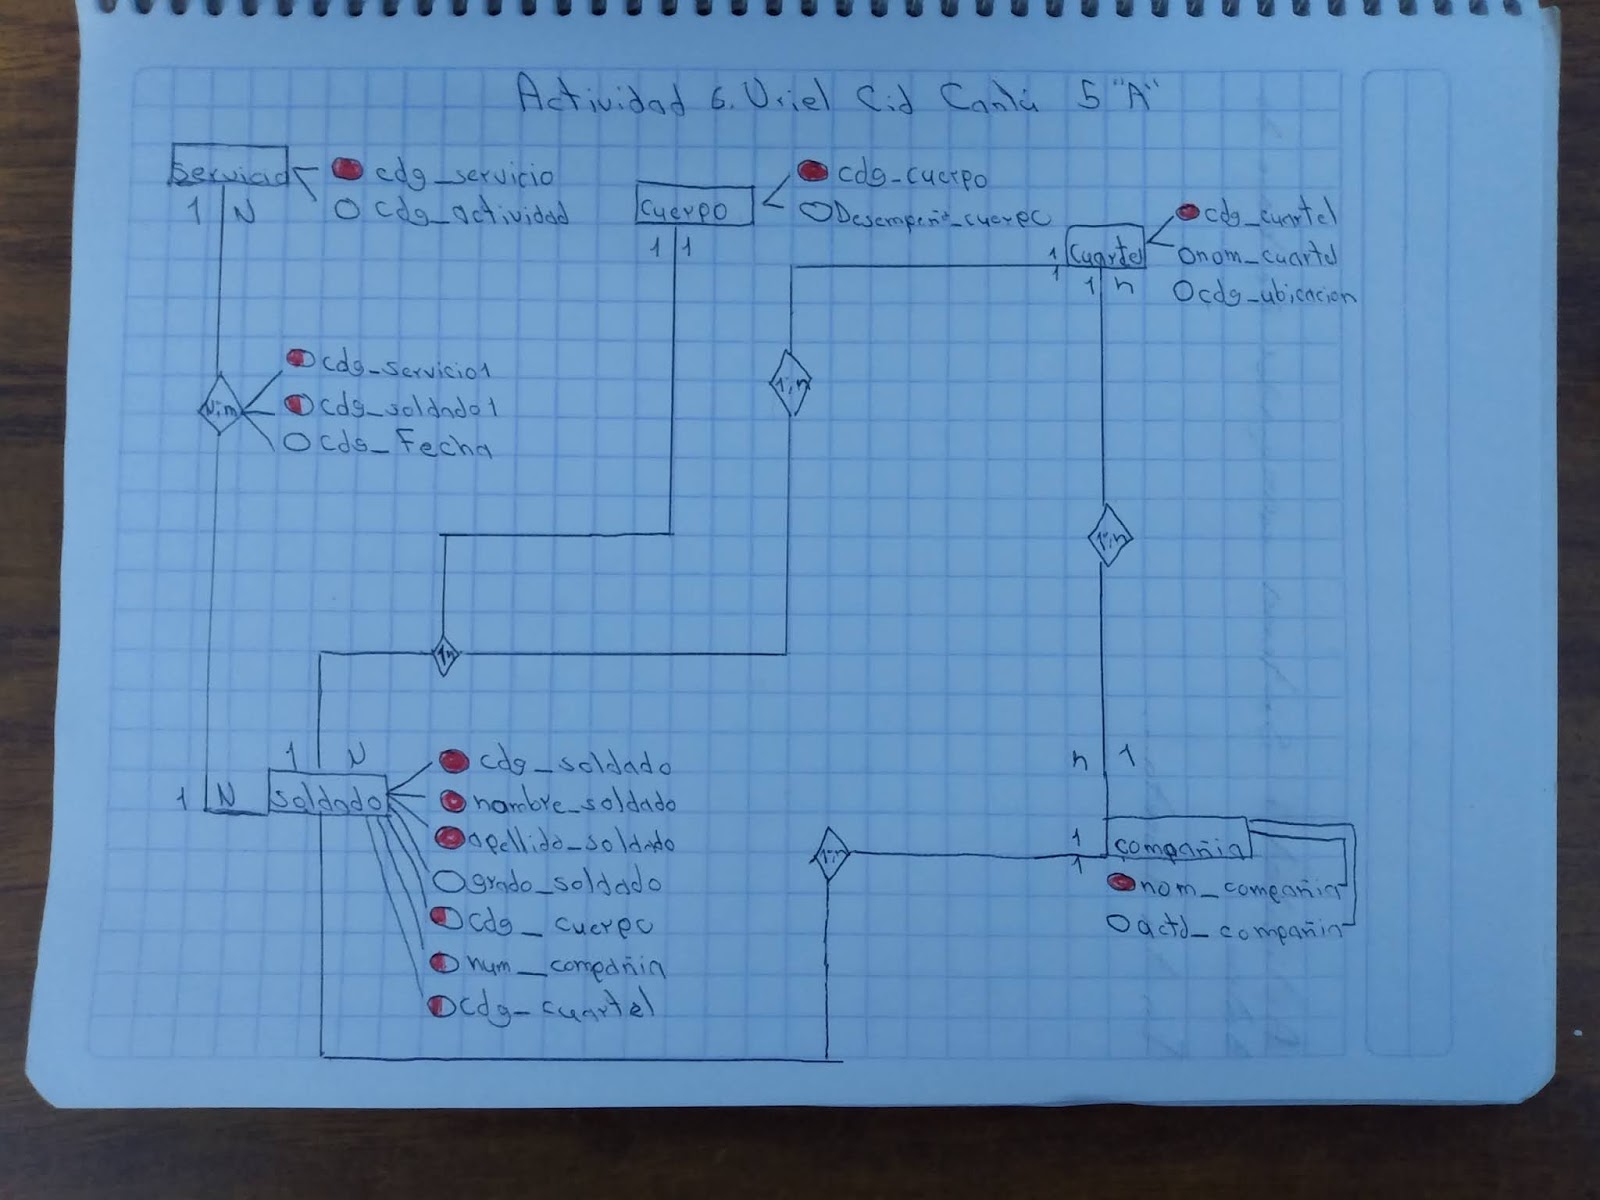 Actividad 6. Uriel Cid Cantú 5 "A"
Servicio
cdg_servicio
cdg_actividad
1 N
Cuerpo
cdg_cuerpo
Desempeñ_cuerpo
1 1
Cuartel
cdg_cuartel
nom_cuartel
cdg_ubicacion
1
1
1 n
N:m
cdg_servicio1
cdg_soldado1
cdg_Fecha
1:n
1:n
1:n
1 N
1 N
Soldado
cdg_soldado
nombre_soldado
apellido_soldado
grado_soldado
cdg_cuerpo
num_compañia
cdg_cuartel
1:n
n 1
1
1
compañia
nom_compañia
actd_compañia